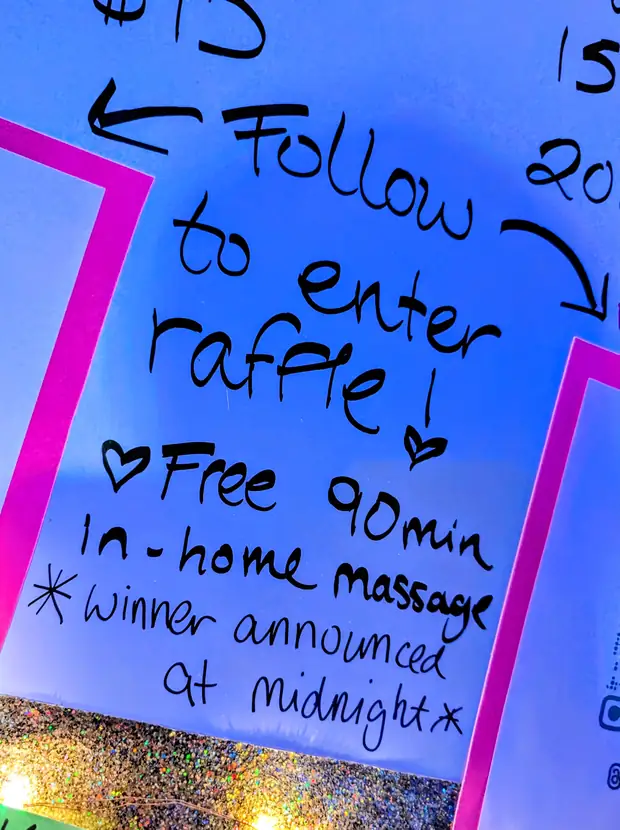 $15
15
20
Follow
to enter
raffle!
Free 90min
in-home massage
*winner announced
at midnight*